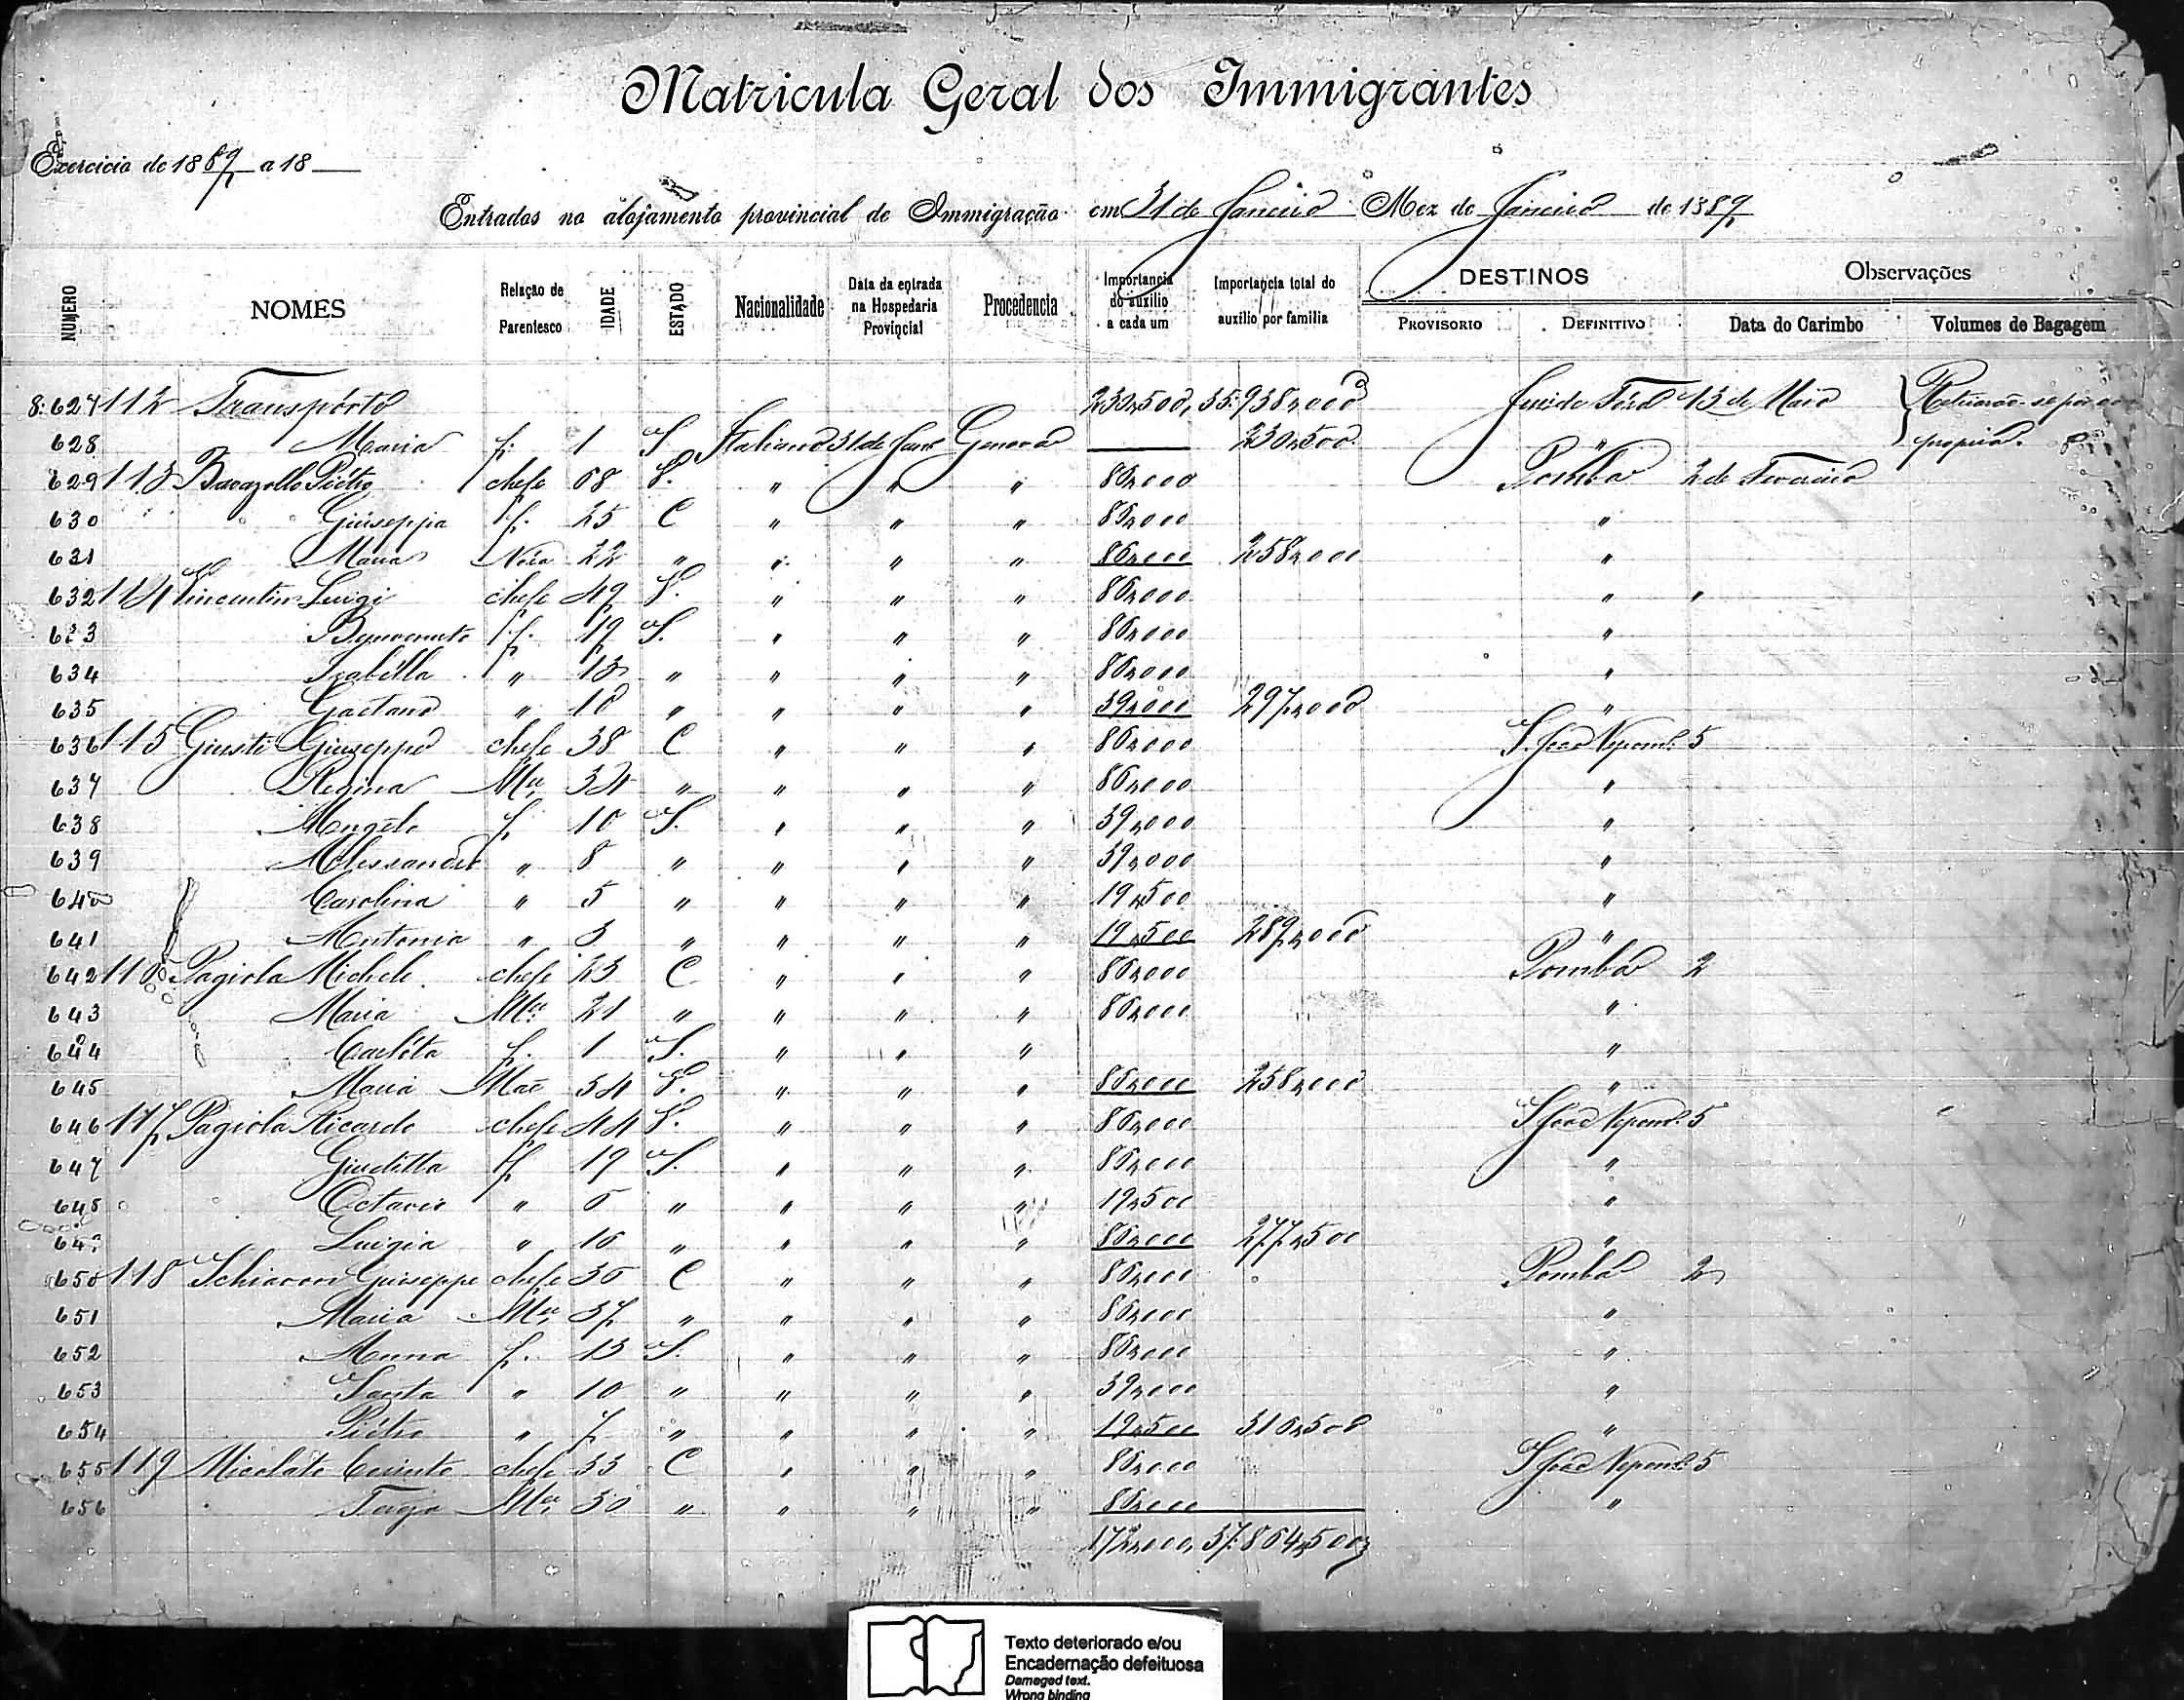 Matricula Geral dos Immigrantes
Exercicio de 1889 a 18
Entrados no alojamento provincial de Immigração em 31 de Janeiro Mez de Janeiro de 1889
NUMERO NOMES Relação de Parentesco IDADE ESTADO Nacionalidade Data da entrada na Hospedaria Provincial Procedencia Importancia do auxilio a cada um Importancia total do auxilio por familia DESTINOS PROVISORIO DEFINITIVO Observações Data do Carimbo Volumes de Bagagem
8:627 112 Transpórto 230,500, 35:938,000 Juiz de Fóra 13 de Maio
628 Maria f. 1 S Italiano 31 de Janº Genova 230,500 " propria.
629 113 Piétro chefe 68 V. " " " 86,000 Pomba 2 de Fevereiro
630 Giuseppia f. 25 C " " " 86,000 "
631 Maria Nóra 22 " " " " 86,000 258,000 "
632 114 Vincentin Luigi chefe 49 V. " " " 86,000 " "
633 Benvenuto f. 19 S. " " " 86,000 "
634 Izabélla " 13 " " " " 86,000 "
635 Gaetano " 10 " " " " 39,000 297,000 "
636 115 Giusti Giuseppe chefe 38 C " " " 86,000 S. João Nepomº 5
637 Regina Mer 34 " " " " 86,000 "
638 Angelo f. 10 S. " " " 39,000 "
639 Alessandro " 8 " " " " 39,000 "
640 Carolina " 5 " " " " 19,500 "
641 Antonia " 3 " " " " 19,500 289,000 "
642 116 Pagiola Michele chefe 23 C " " " 86,000 Pomba 2
643 Maria Mer 21 " " " " 86,000 "
644 Carlóta f. 1 S. " " " "
645 Maria Mãe 54 V. " " " 86,000 258,000 "
646 117 Pagiola Ricardo chefe 44 V. " " " 86,000 S. João Nepomº 5
647 Giuditta f. 19 S. " " " 86,000 "
648 Octavio " 6 " " " " 19,500 "
649 Luigia " 16 " " " " 86,000 277,500 "
650 118 Schiavon Giuseppe chefe 36 C " " " 86,000 Pomba 2
651 Maria Mer 37 " " " " 86,000 "
652 Anna f. 13 S. " " " 86,000 "
653 Santa " 10 " " " " 39,000 "
654 Piétro " 7 " " " " 19,500 316,500 "
655 119 Micolato chefe 33 C " " " 86,000 S. João Nepomº 5
656 Mer 30 " " " " 86,000 "
172,000, 37:864,500
Texto deteriorado e/ou
Encadernação defeituosa
Damaged text.
Wrong binding